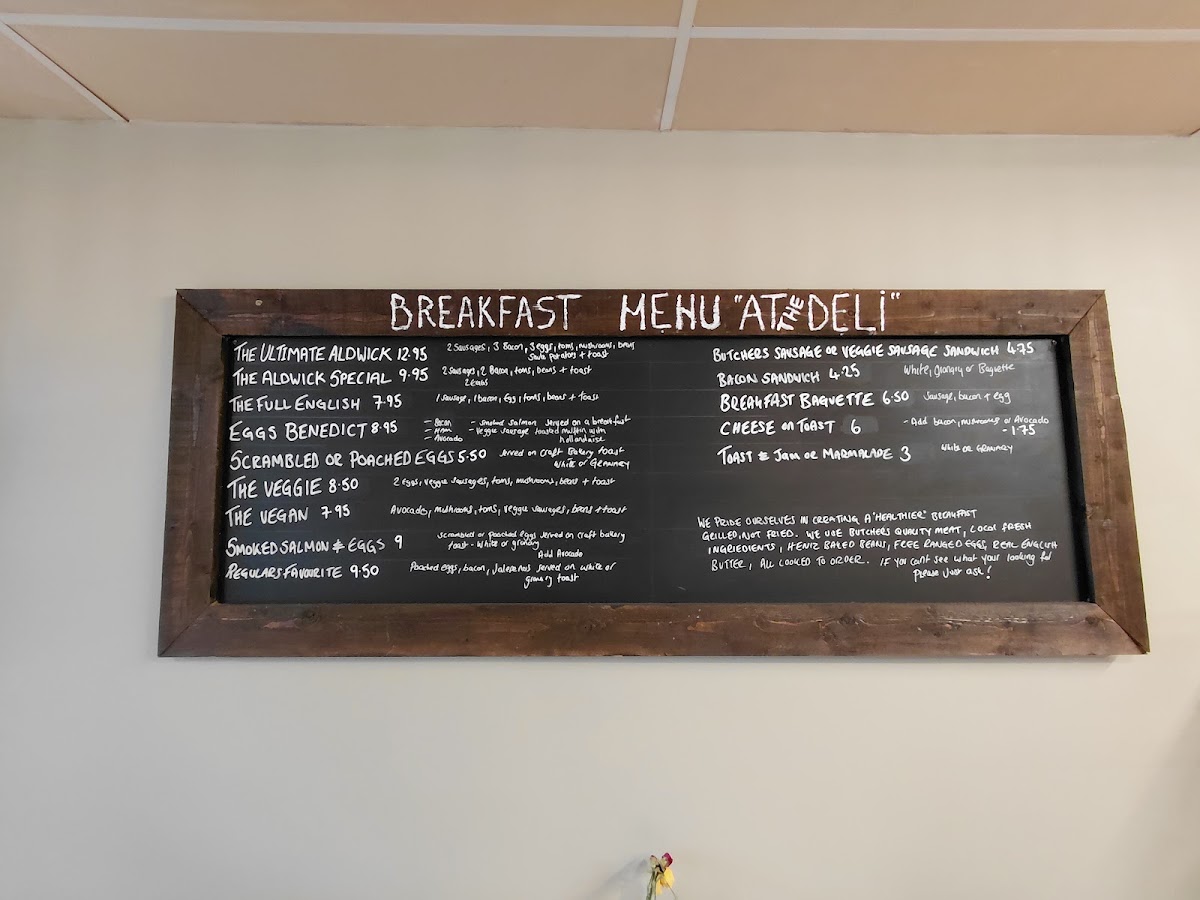 BREAKFAST MENU "AT THE DELI"
THE ULTIMATE ALDWICK 12.95 2 Sausages, 3 Bacon, 3 eggs, toms, mushrooms, beans
Saute potatoes + toast
THE ALDWICK SPECIAL 9.95 2 Sausages, 2 Bacon, toms, beans + toast
2 Eggs
THE FULL ENGLISH 7.95 1 Sausage, 1 bacon, Egg, toms, beans + toast
EGGS BENEDICT 8.95 - Bacon - smoked salmon served on a breakfast
- Ham - Veggie sausage toasted muffin with
- Avocado hollandaise
SCRAMBLED OR POACHED EGGS 5.50 served on craft Bakery toast
White or GRANARY
THE VEGGIE 8.50 2 Eggs, Veggie sausages, toms, mushrooms, beans + toast
THE VEGAN 7.95 Avocado, mushrooms, toms, veggie sausages, beans + toast
SMOKED SALMON & EGGS 9 scrambled or poached eggs served on craft bakery
toast - white or granary
Add Avocado
REGULARS FAVOURITE 9.50 Poached eggs, bacon, Jalepenos served on white or
granary toast
BUTCHERS SAUSAGE OR VEGGIE SAUSAGE SANDWICH 4.75
BACON SANDWICH 4.25 White, Granary or Baguette
BREAKFAST BAGUETTE 6.50 Sausage, bacon + egg
CHEESE ON TOAST 6 - Add bacon, mushrooms or Avocado
- 1.75
TOAST & JAM OR MARMALADE 3 White or GRANARY
WE PRIDE OURSELVES IN CREATING A "HEALTHIER" BREAKFAST
GRILLED, NOT FRIED. WE USE BUTCHERS QUALITY MEAT, LOCAL FRESH
INGRIEDIENTS, HEINZ BAKED BEANS, FREE RANGED EGGS, REAL ENGLISH
BUTTER, ALL COOKED TO ORDER. IF YOU CAN'T SEE what your looking for
Please Just ask!